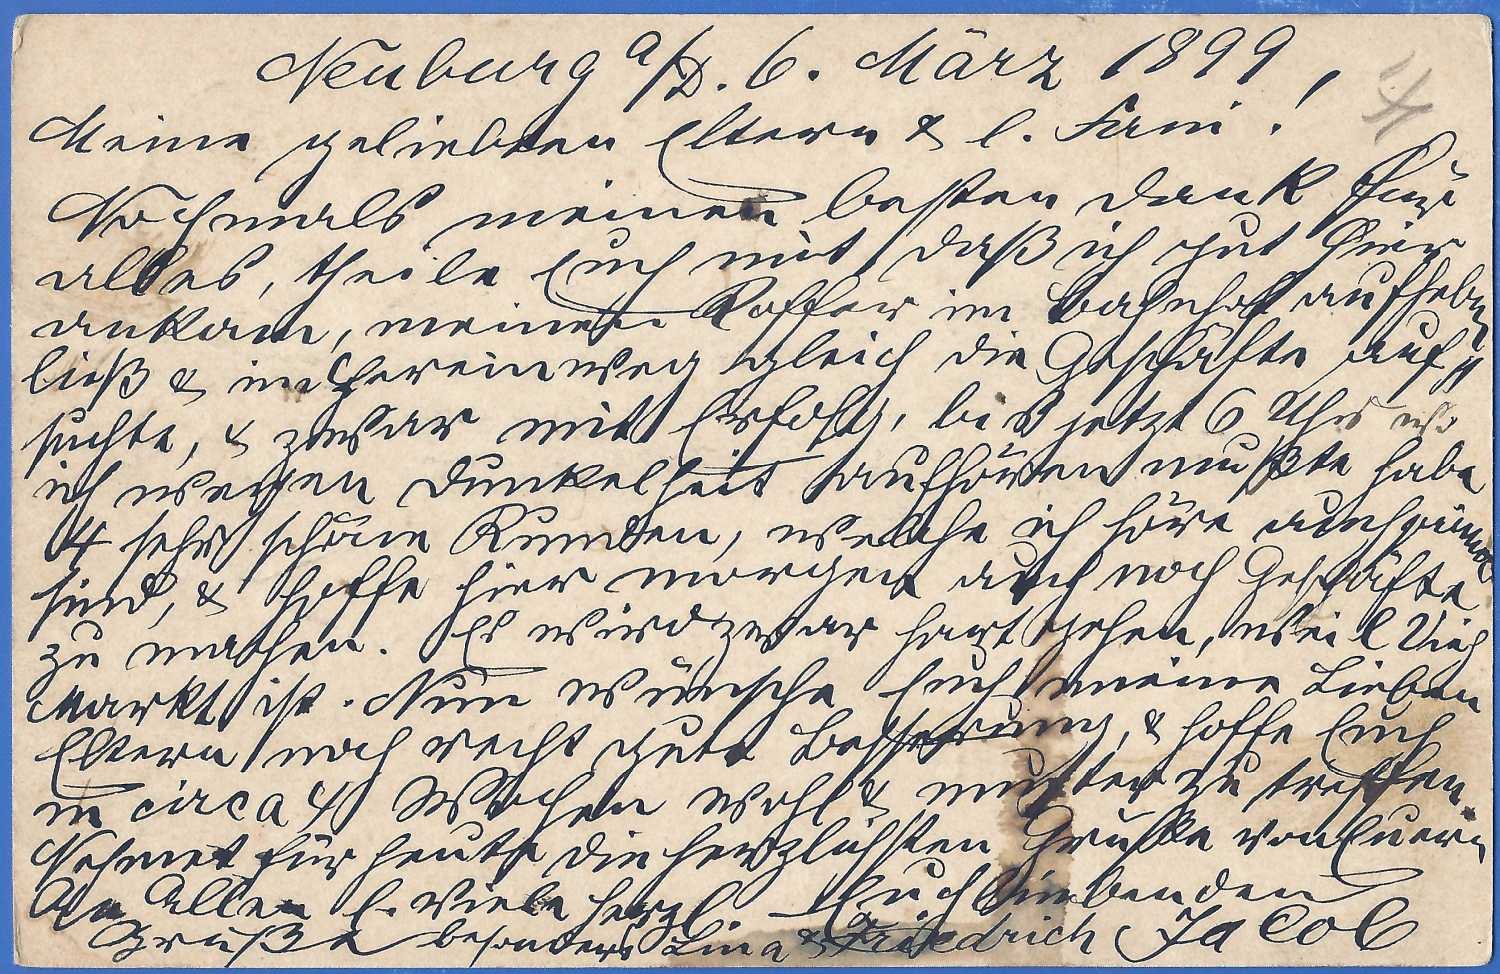 Neuburg a/D. 6. März 1899,
Meine geliebten Eltern & l. Fani!
Nochmals meinen besten Dank für
alles, theile Euch mit, daß ich gut hier
ankam, meinen Koffer im Bahnhof aufheben
ließ & im Hereinweg gleich die Geschäfte auf
suchte, & zwar mit Erfolg, bis jetzt 6 Uhr wo
ich wegen Dunkelheit aufhören mußte habe
4 sehr schöne Kunden, welche ich höre auch prima
sind, & hoffe hier morgen auch noch Geschäfte
zu machen. Es wird zwar hart gehen, weil Vieh
Markt ist. Nun wünsche Euch meine Lieben
Eltern noch recht gute Besserung, & hoffe Euch
in circa 4 Wochen wohl & munter zu treffen.
Nehmet für heute die herzlichsten Grüße von Euern
Euch liebenden
Jacob
An Alle l. viele herzl.
Grüße besonders Lina & Friedrich